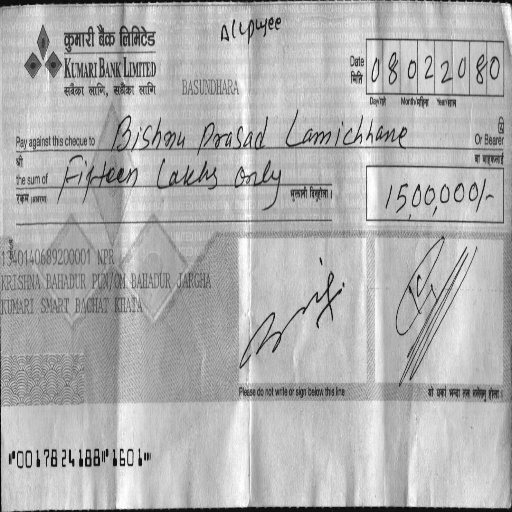 A/c payee
कुमारी बैंक लिमिटेड
KUMARI BANK LIMITED
सबैका लागि, सधैंका लागि
BASUNDHARA
Date
मिति
08022080
Day/गते Month/महिना Year/साल
Pay against this cheque to Bishnu Prasad Lamichhane Or Bearer
श्री वा वाहकलाई
the sum of Fifteen Lakhs only
रकम (अक्षरमा) भुक्तानी दिनुहोला ।
15,00,000/-
1340140689200001 NPR
KRISHNA BAHADUR PUN/OM BAHADUR JARGHA
KUMARI SMART BACHAT KHATA
Please do not write or sign below this line
⑈00178241⑈8⑈ 1601⑈